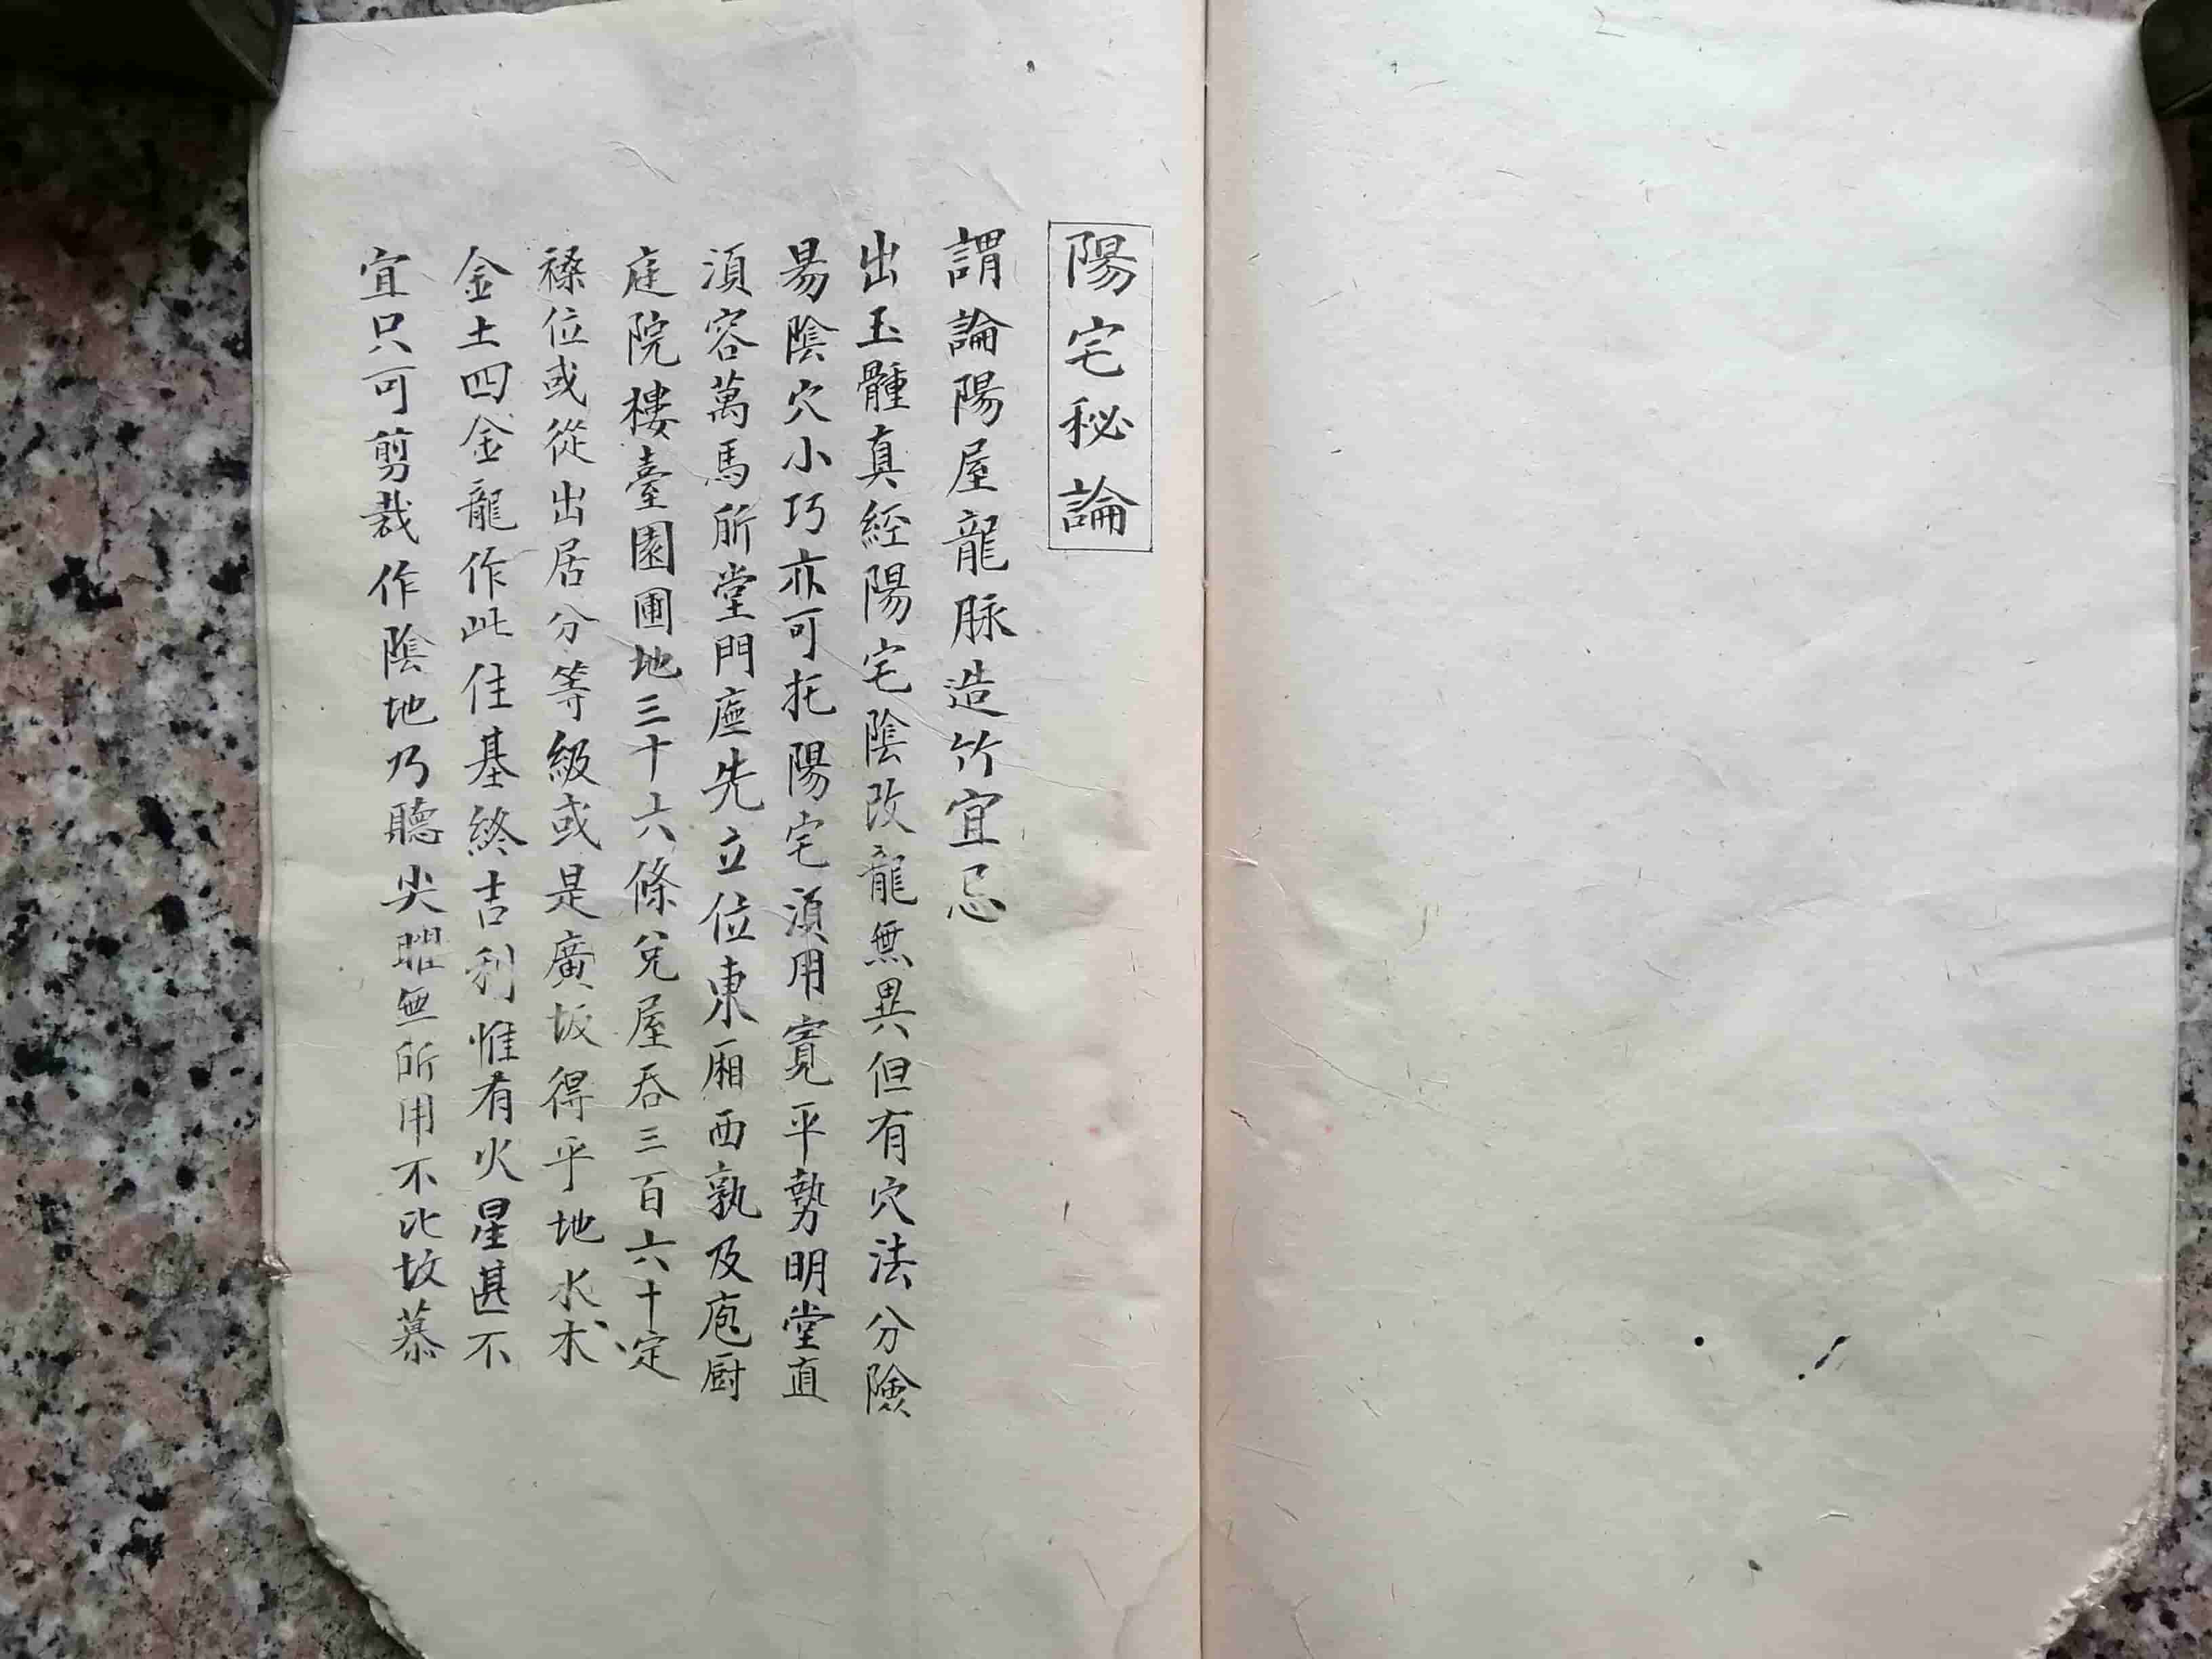 陽宅秘論
謂論陽屋龍脉造竹宜忌
出玉髓真經陽宅陰改龍無異但有穴法分險
易陰穴小巧亦可托陽宅湏用寬平勢明堂直
湏容萬馬所堂門廡先立位東廂西孰及庖厨
庭院樓臺園圃地三十六條兌屋吞三百六十定
磉位或從出居分等級或是廣坂得乎地水木
金土四金龍作此佳基終吉利惟有火星甚不
宜只可剪裁作陰地乃聽尖曜無所用不比坟慕